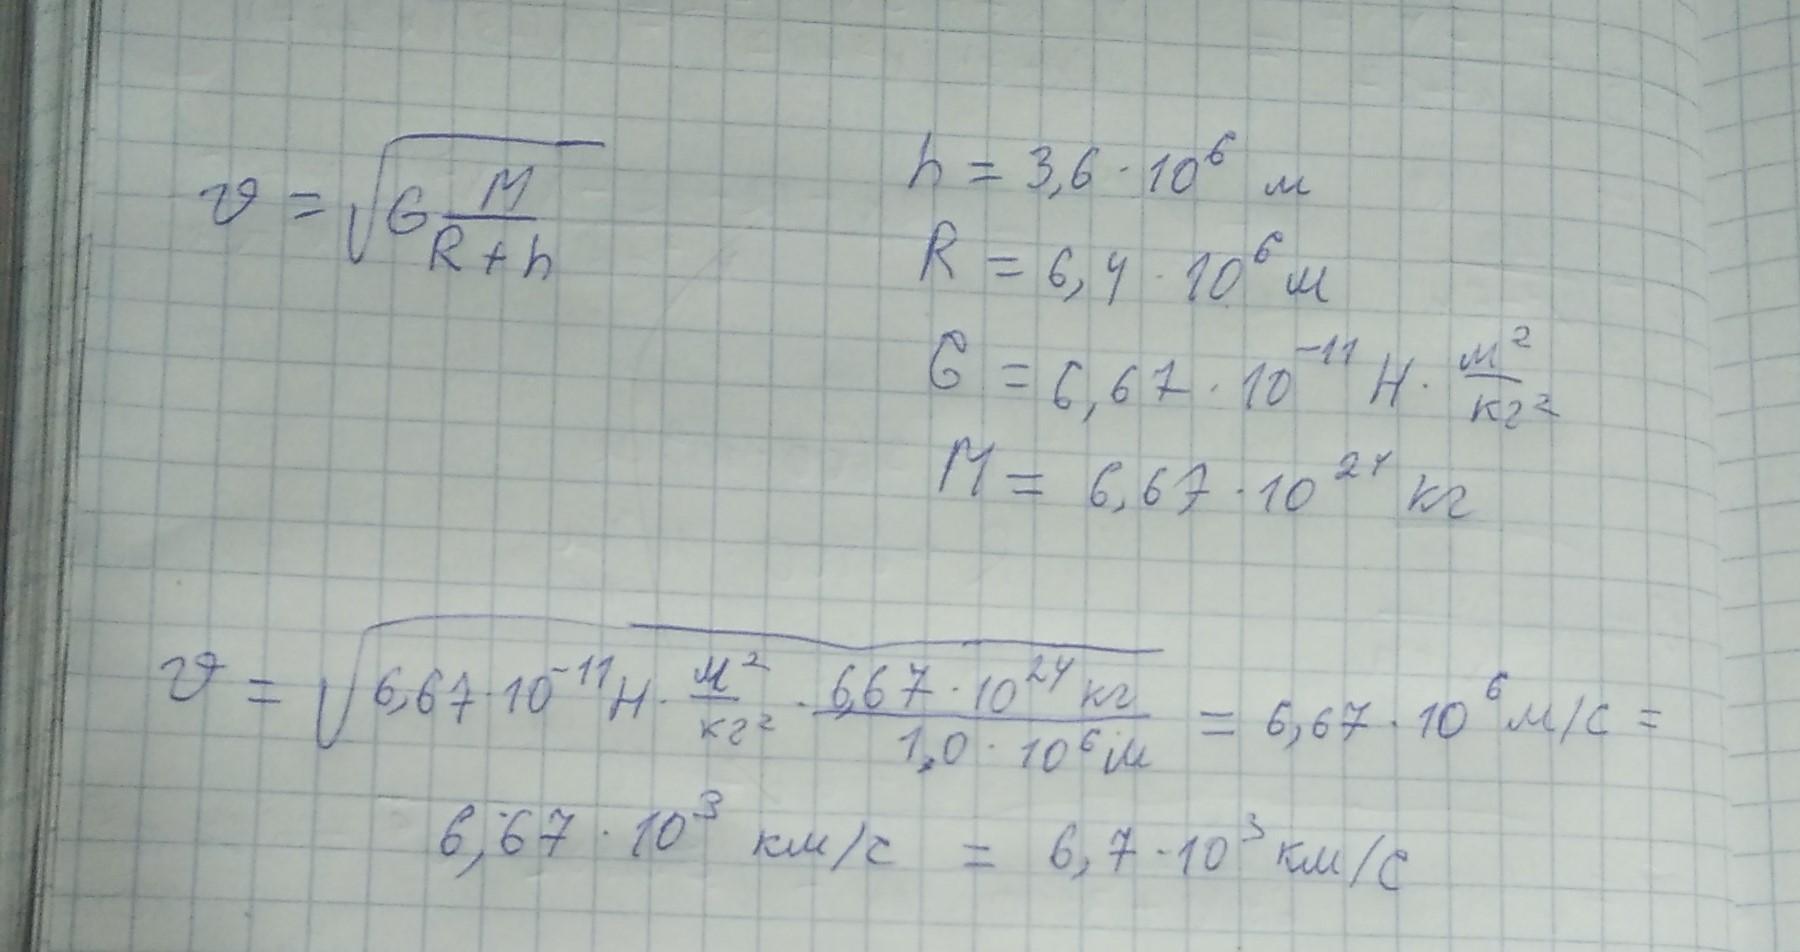 𝜗 = √(G M/(R + h))
h = 3,6 · 10⁶ м
R = 6,4 · 10⁶ м
G = 6,67 · 10⁻¹¹ Н · м²/кг²
M = 6,67 · 10²⁴ кг
𝜗 = √(6,67 · 10⁻¹¹ Н · м²/кг² · 6,67 · 10²⁴ кг/1,0 · 10⁶ м) = 6,67 · 10⁶ м/с =
6,67 · 10³ км/с = 6,7 · 10³ км/с